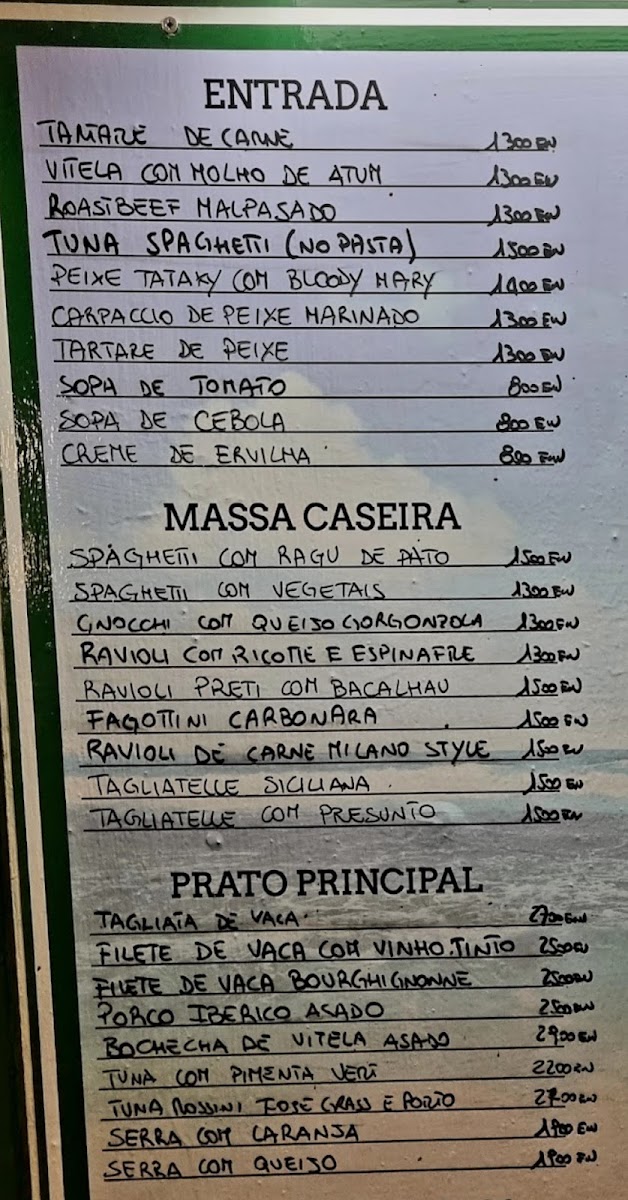 ENTRADA
TARTARE DE CARNE 1300 EW
VITELA COM MOLHO DE ATUM 1300 EW
ROASTBEEF MALPASADO 1300 EW
TUNA SPAGHETTI (NO PASTA) 1500 EW
PEIXE TATAKY COM BLOODY MARY 1400 EW
CARPACCIO DE PEIXE MARINADO 1300 EW
TARTARE DE PEIXE 1300 EW
SOPA DE TOMATO 800 EW
SOPA DE CEBOLA 800 EW
CREME DE ERVILHA 800 EW
MASSA CASEIRA
SPAGHETTI COM RAGU DE PATO 1500 EW
SPAGHETTI COM VEGETAIS 1300 EW
GNOCCHI COM QUEIJO GORGONZOLA 1300 EW
RAVIOLI COM RICOTTE E ESPINAFRE 1300 EW
RAVIOLI PRETI COM BACALHAU 1500 EW
FAGOTTINI CARBONARA 1500 EW
RAVIOLI DE CARNE MILANO STYLE 1500 EW
TAGLIATELLE SICILIANA 1500 EW
TAGLIATELLE COM PRESUNTO 1500 EW
PRATO PRINCIPAL
TAGLIATA DE VACA 2700 EW
FILETE DE VACA COM VINHO TINTO 2500 EW
FILETE DE VACA BOURGHIGNONNE 2500 EW
PORCO IBERICO ASADO 2500 EW
BOCHECHA DE VITELA ASADO EW
TUNA COM PIMENTA VERT 2200 EW
TUNA ROSSINI E PORTO 2700 EW
SERRA COM LARANJA 1900 EW
SERRA COM QUEIJO 1900 EW